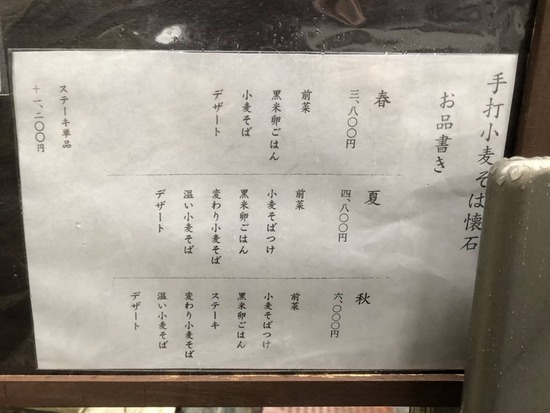 手打小麦そば懐石
お品書き
春
三、八〇〇円
前菜
黒米卵ごはん
小麦そば
デザート
夏
四、八〇〇円
前菜
小麦そばつけ
黒米卵ごはん
変わり小麦そば
温い小麦そば
デザート
秋
六、〇〇〇円
前菜
小麦そばつけ
黒米卵ごはん
ステーキ
変わり小麦そば
温い小麦そば
デザート
ステーキ単品
＋一、二〇〇円